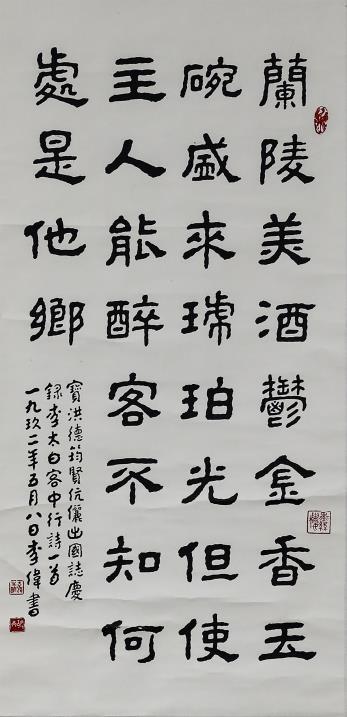 蘭陵美酒鬱金香玉
碗盛來琥珀光但使
主人能醉客不知何
處是他鄉
寶洪德筠賢伉儷出國誌慶
錄李太白客中行詩一首
一九玖二年五月八日李偉書